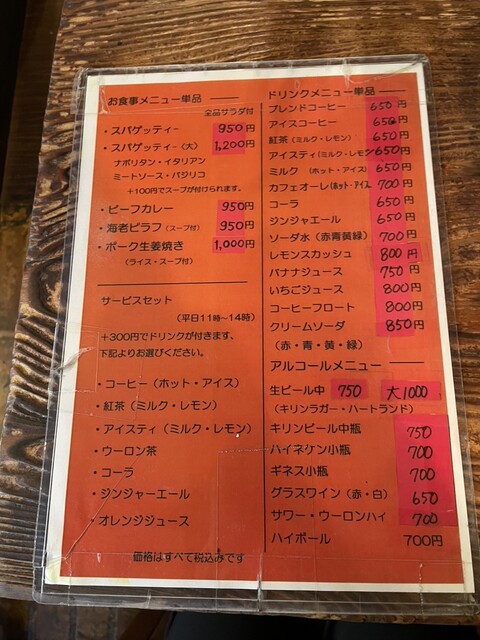 お食事メニュー単品
全品サラダ付
・スパゲッティー 950円
・スパゲッティー(大) 1,200円
ナポリタン・イタリアン
ミートソース・バジリコ
+100円でスープが付けられます。
・ビーフカレー 950円
・海老ピラフ(スープ付) 950円
・ポーク生姜焼き 1,000円
(ライス・スープ付)
サービスセット
(平日11時〜14時)
+300円でドリンクが付きます、
下記よりお選びください。
・コーヒー(ホット・アイス)
・紅茶(ミルク・レモン)
・アイスティ(ミルク・レモン)
・ウーロン茶
・コーラ
・ジンジャーエール
・オレンジジュース
価格はすべて税込みです
ドリンクメニュー単品
ブレンドコーヒー 650円
アイスコーヒー 650円
紅茶(ミルク・レモン) 650円
アイスティ(ミルク・レモン) 650円
ミルク (ホット・アイス) 650円
カフェオーレ(ホット・アイス 700円
コーラ 650円
ジンジャエール 650円
ソーダ水(赤青黄緑) 700円
レモンスカッシュ 800円
バナナジュース 750円
いちごジュース 800円
コーヒーフロート 800円
クリームソーダ 850円
(赤・青・黄・緑)
アルコールメニュー
生ビール中 750 大1000
(キリンラガー・ハートランド)
キリンビール中瓶 750
ハイネケン小瓶 700
ギネス小瓶 700
グラスワイン(赤・白) 650
サワー・ウーロンハイ 700
ハイボール 700円